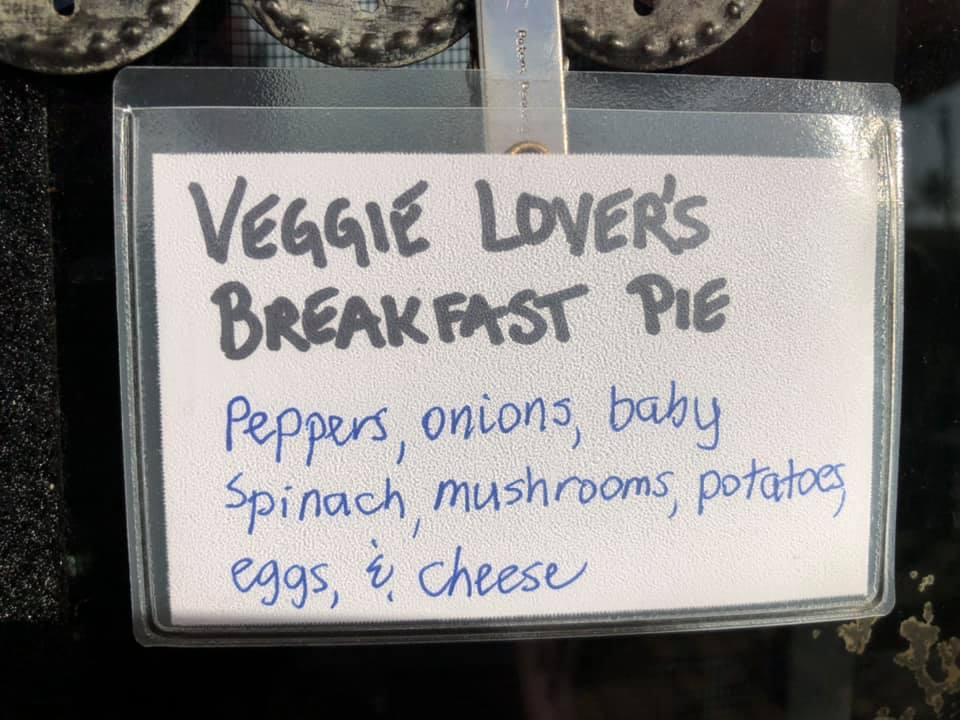 VEGGIE LOVER'S
BREAKFAST PIE
Peppers, onions, baby
Spinach, mushrooms, potatoes,
eggs, & cheese